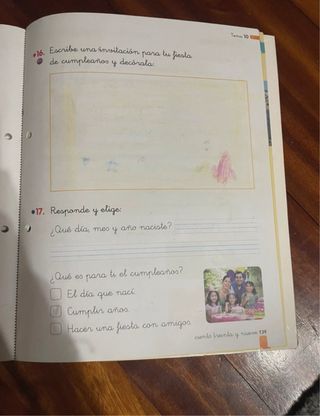 Tema 10
16. Escribe una invitación para tu fiesta
de cumpleaños y decórala:
17. Responde y elige:
¿Qué día, mes y año naciste?
¿Qué es para ti el cumpleaños?
El día que nací.
Cumplir años.
Hacer una fiesta con amigos.
ciento treinta y nueve 139